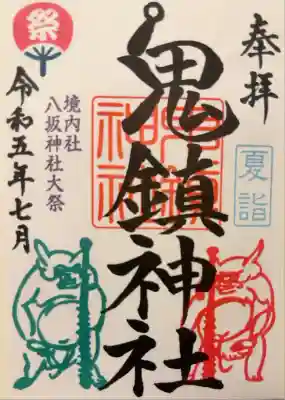 奉拝
夏詣
鬼鎮神社
境内社
八坂神社大祭
祭
令和五年七月